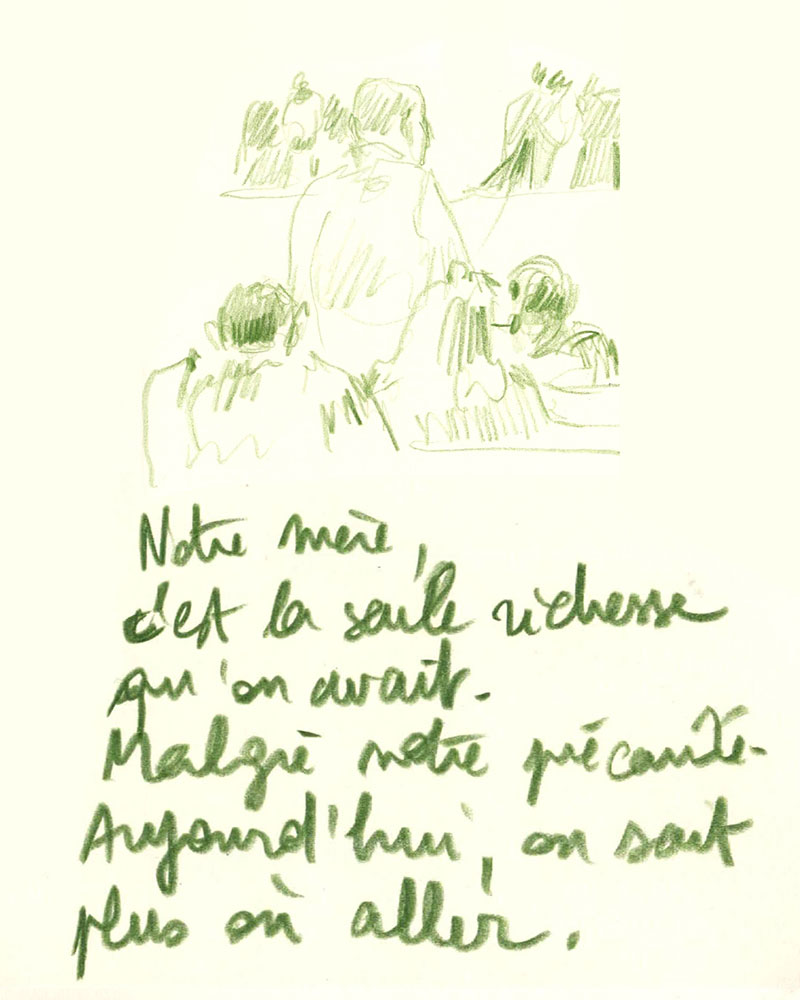 Notre mère,
c'est la seule richesse
qu'on avait.
Malgré notre précarité.
Aujourd'hui, on sait
plus où aller.